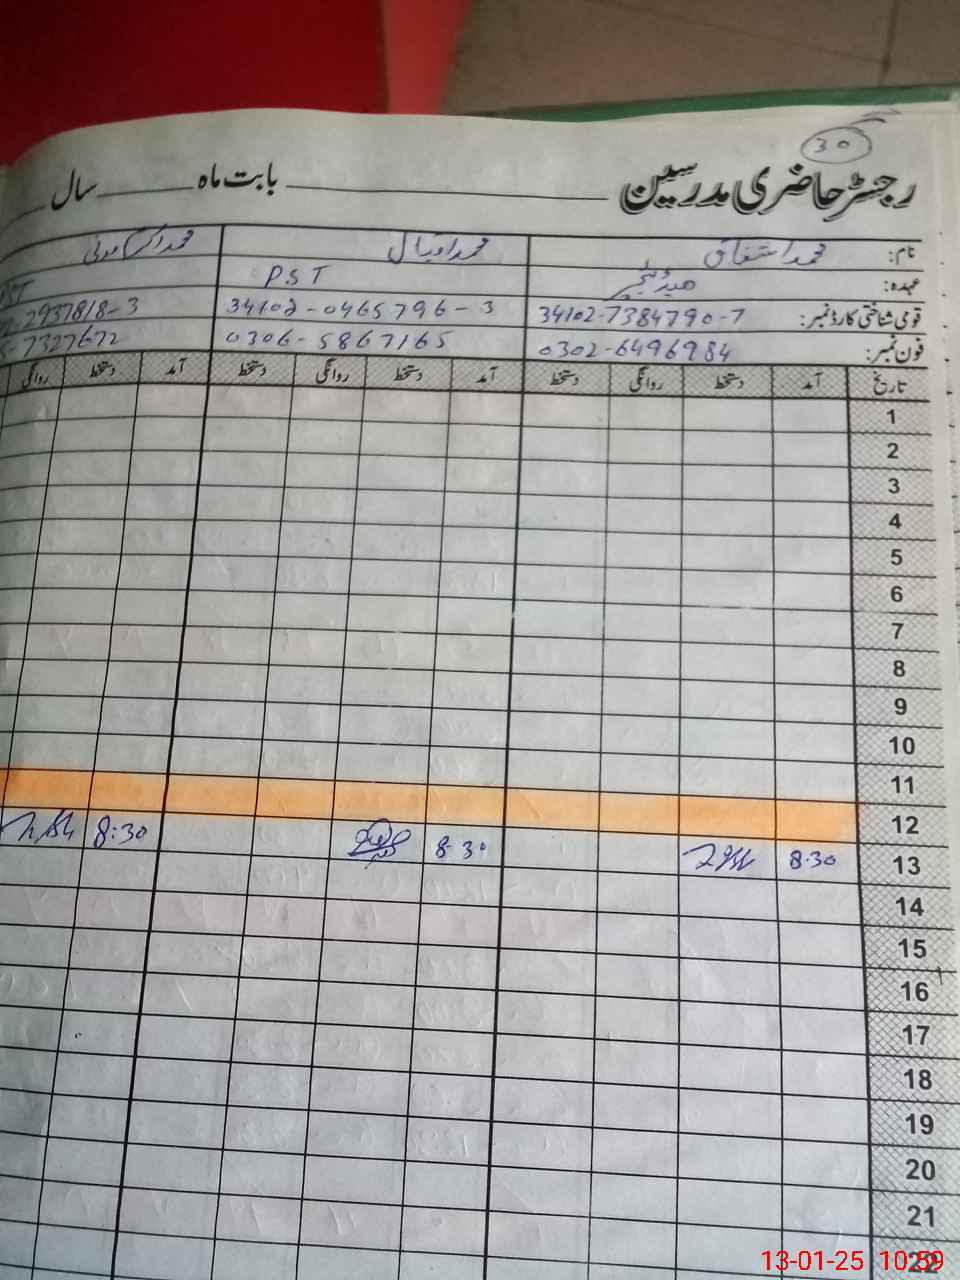 30
رجسٹر حاضری مدرسین بابت ماہ سال
نام: محمد اشفاق محمد اقبال محمد اکرم
عہدہ: ہیڈ ٹیچر P.S.T PST
قومی شناختی کارڈ نمبر: 34102-7384790-7 34102-0465796-3 2937818-3
فون نمبر: 0302-6496984 0306-5867165 7327672
تاریخ آمد دستخط روانگی دستخط آمد دستخط روانگی دستخط آمد دستخط روانگی
1
2
3
4
5
6
7
8
9
10
11
12
13 8.30 8.30 8:30
14
15
16
17
18
19
20
21
22
13-01-25 10:59